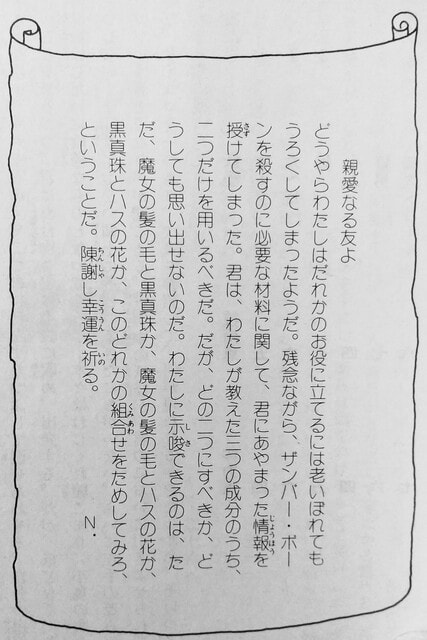 親愛なる友よ
どうやらわたしはだれかのお役に立てるには老いぼれても
うろくしてしまったようだ。残念ながら、ザンバー・ボー
ンを殺すのに必要な材料に関して、君にあやまった情報を
授けてしまった。君は、わたしが教えた三つの成分のうち、
二つだけを用いるべきだ。だが、どの二つにすべきか、ど
うしても思い出せないのだ。わたしに示唆できるのは、た
だ、魔女の髪の毛と黒真珠か、魔女の髪の毛とハスの花か、
黒真珠とハスの花か、このどれかの組合せをためしてみろ、
ということだ。陳謝し幸運を祈る。
N・